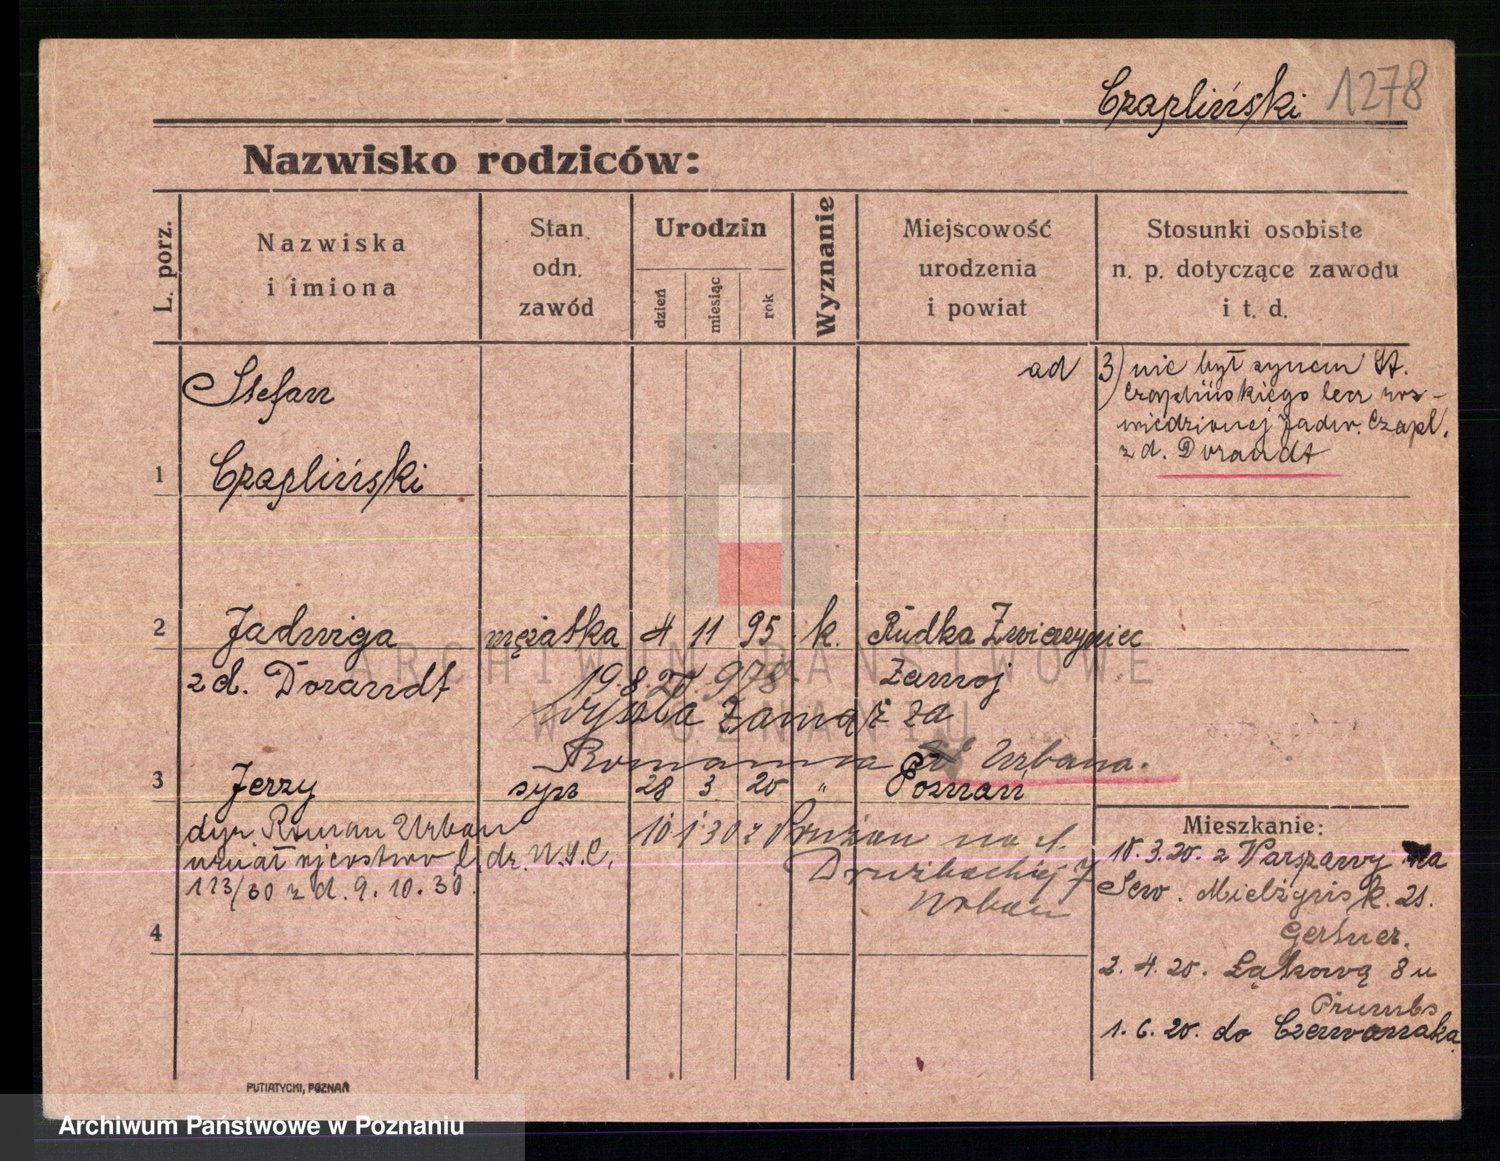 Czapliński 1278
Nazwisko rodziców:
L. porz.
Nazwiska
i imiona
Stan
odn.
zawód
Urodzin
dzień
miesiąc
rok
Wyznanie
Miejscowość
urodzenia
i powiat
Stosunki osobiste
n. p. dotyczące zawodu
i t. d.
1
Stefan
Czapliński
ad 3) nie był synem St.
Czaplińskiego lecz roz-
wiedzionej Jadw. Czapl.
z d. Dorandt
2 Jadwiga mężatka 4 11 95 k. Rudka Zwierzyniec
z d. Dorandt Zamoj
19.8.27. 978
wyszła zamąż za
Romana Urbana.
3 Jerzy syn 28 3 20 " Poznań
dyr. Roman Urban
uznał ojcostwo
123/30 z d. 9. 10. 30.
10 1 30 z Prużan na
Drużbackiej 7
Urban
4
Mieszkanie:
18.3.20. z Warszawy na
Sew. Mielżyńsk. 21.
Gertner.
2. 4. 20. Łąkową 8 u
1. 6. 20. do Czerwonaka
PUTIATYCKI, POZNAŃ
ARCHIWUM PAŃSTWOWE
W POZNANIU
Archiwum Państwowe w Poznaniu